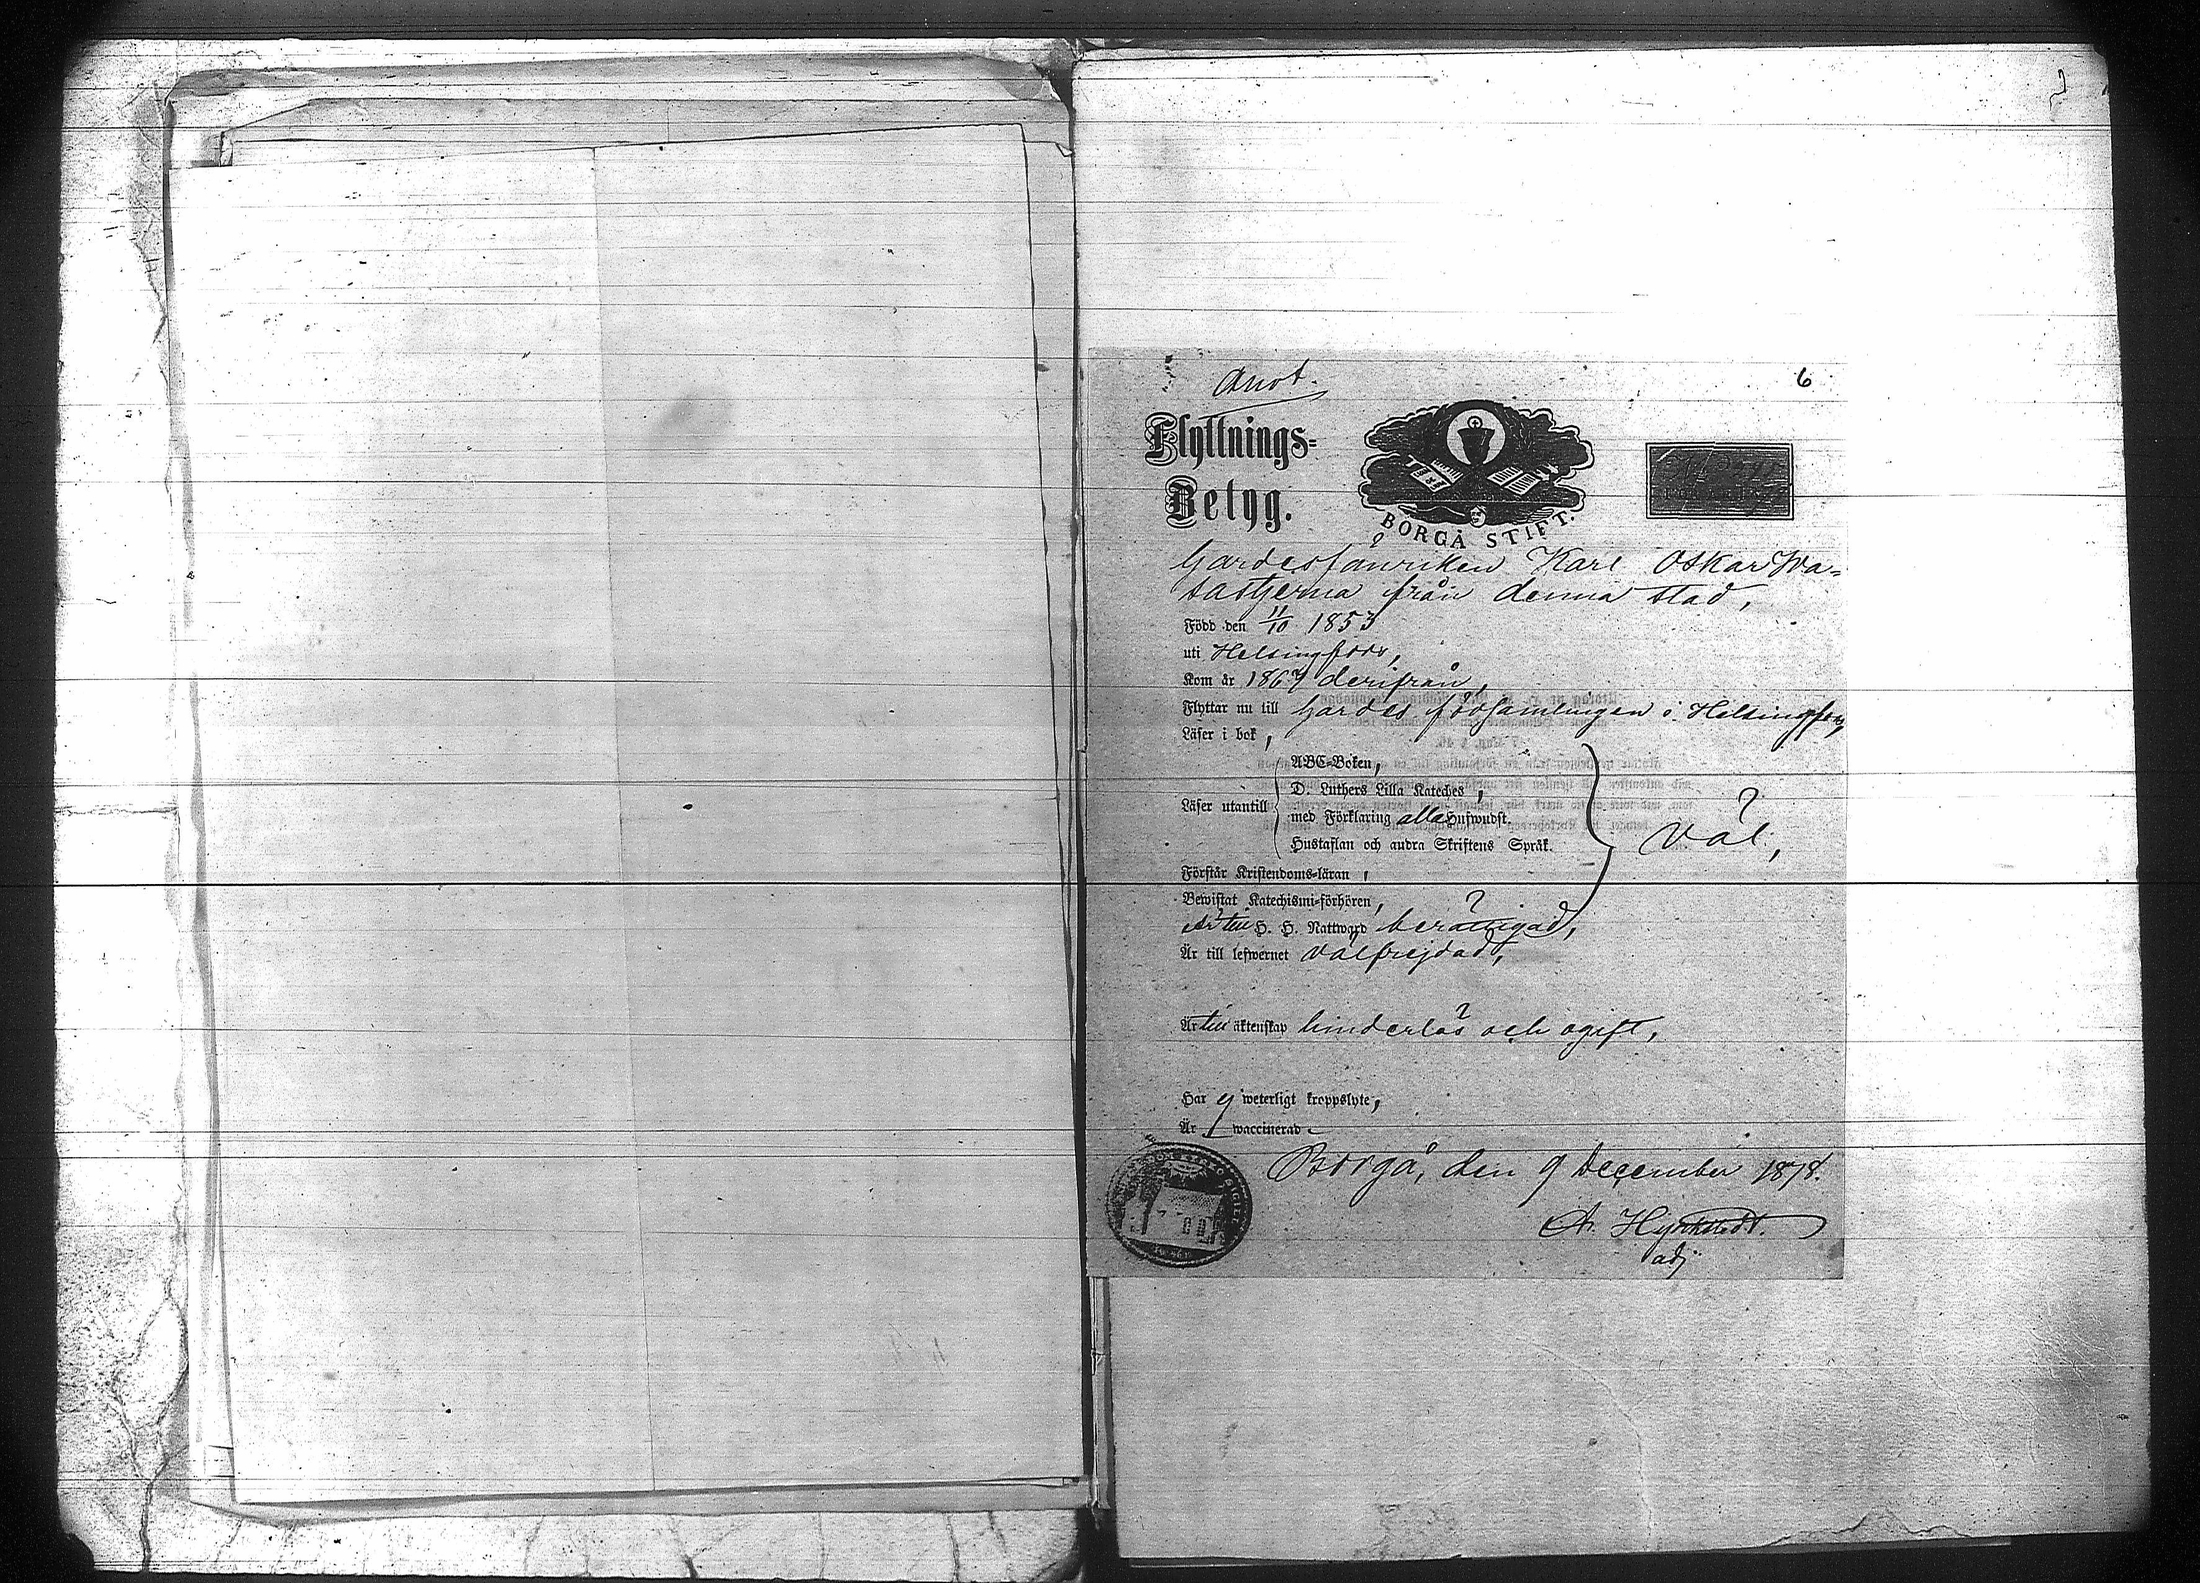 Anot.
6
Flyttnings-
Betyg.
BORGÅ STIFT.
Gardesfänriken Karl Oskar Wa-
sastjerna från denna stad,
Född den 11/10 1853
uti Helsingfors,
Kom år 1867 derifrån,
Flyttar nu till Gardes församlingen i Helsingfors,
Läser i bok,
ABC-Boken,
D. Luthers Lilla Kateches,
Läser utantill
med Förklaring alla Hufwudst.
Hustaflan och andra Skriftens Språk.
väl,
Förstår Kristendoms-läran,
Bewistat Katechismi-förhören,
Är till H. H. Nattward berättigad,
Är till lefwernet välfrejdad,
Är till äktenskap hinderlös och ogift,
Har ej weterligt kroppslyte,
Är waccinerad
Borgå, den 9 December 1878.
adj